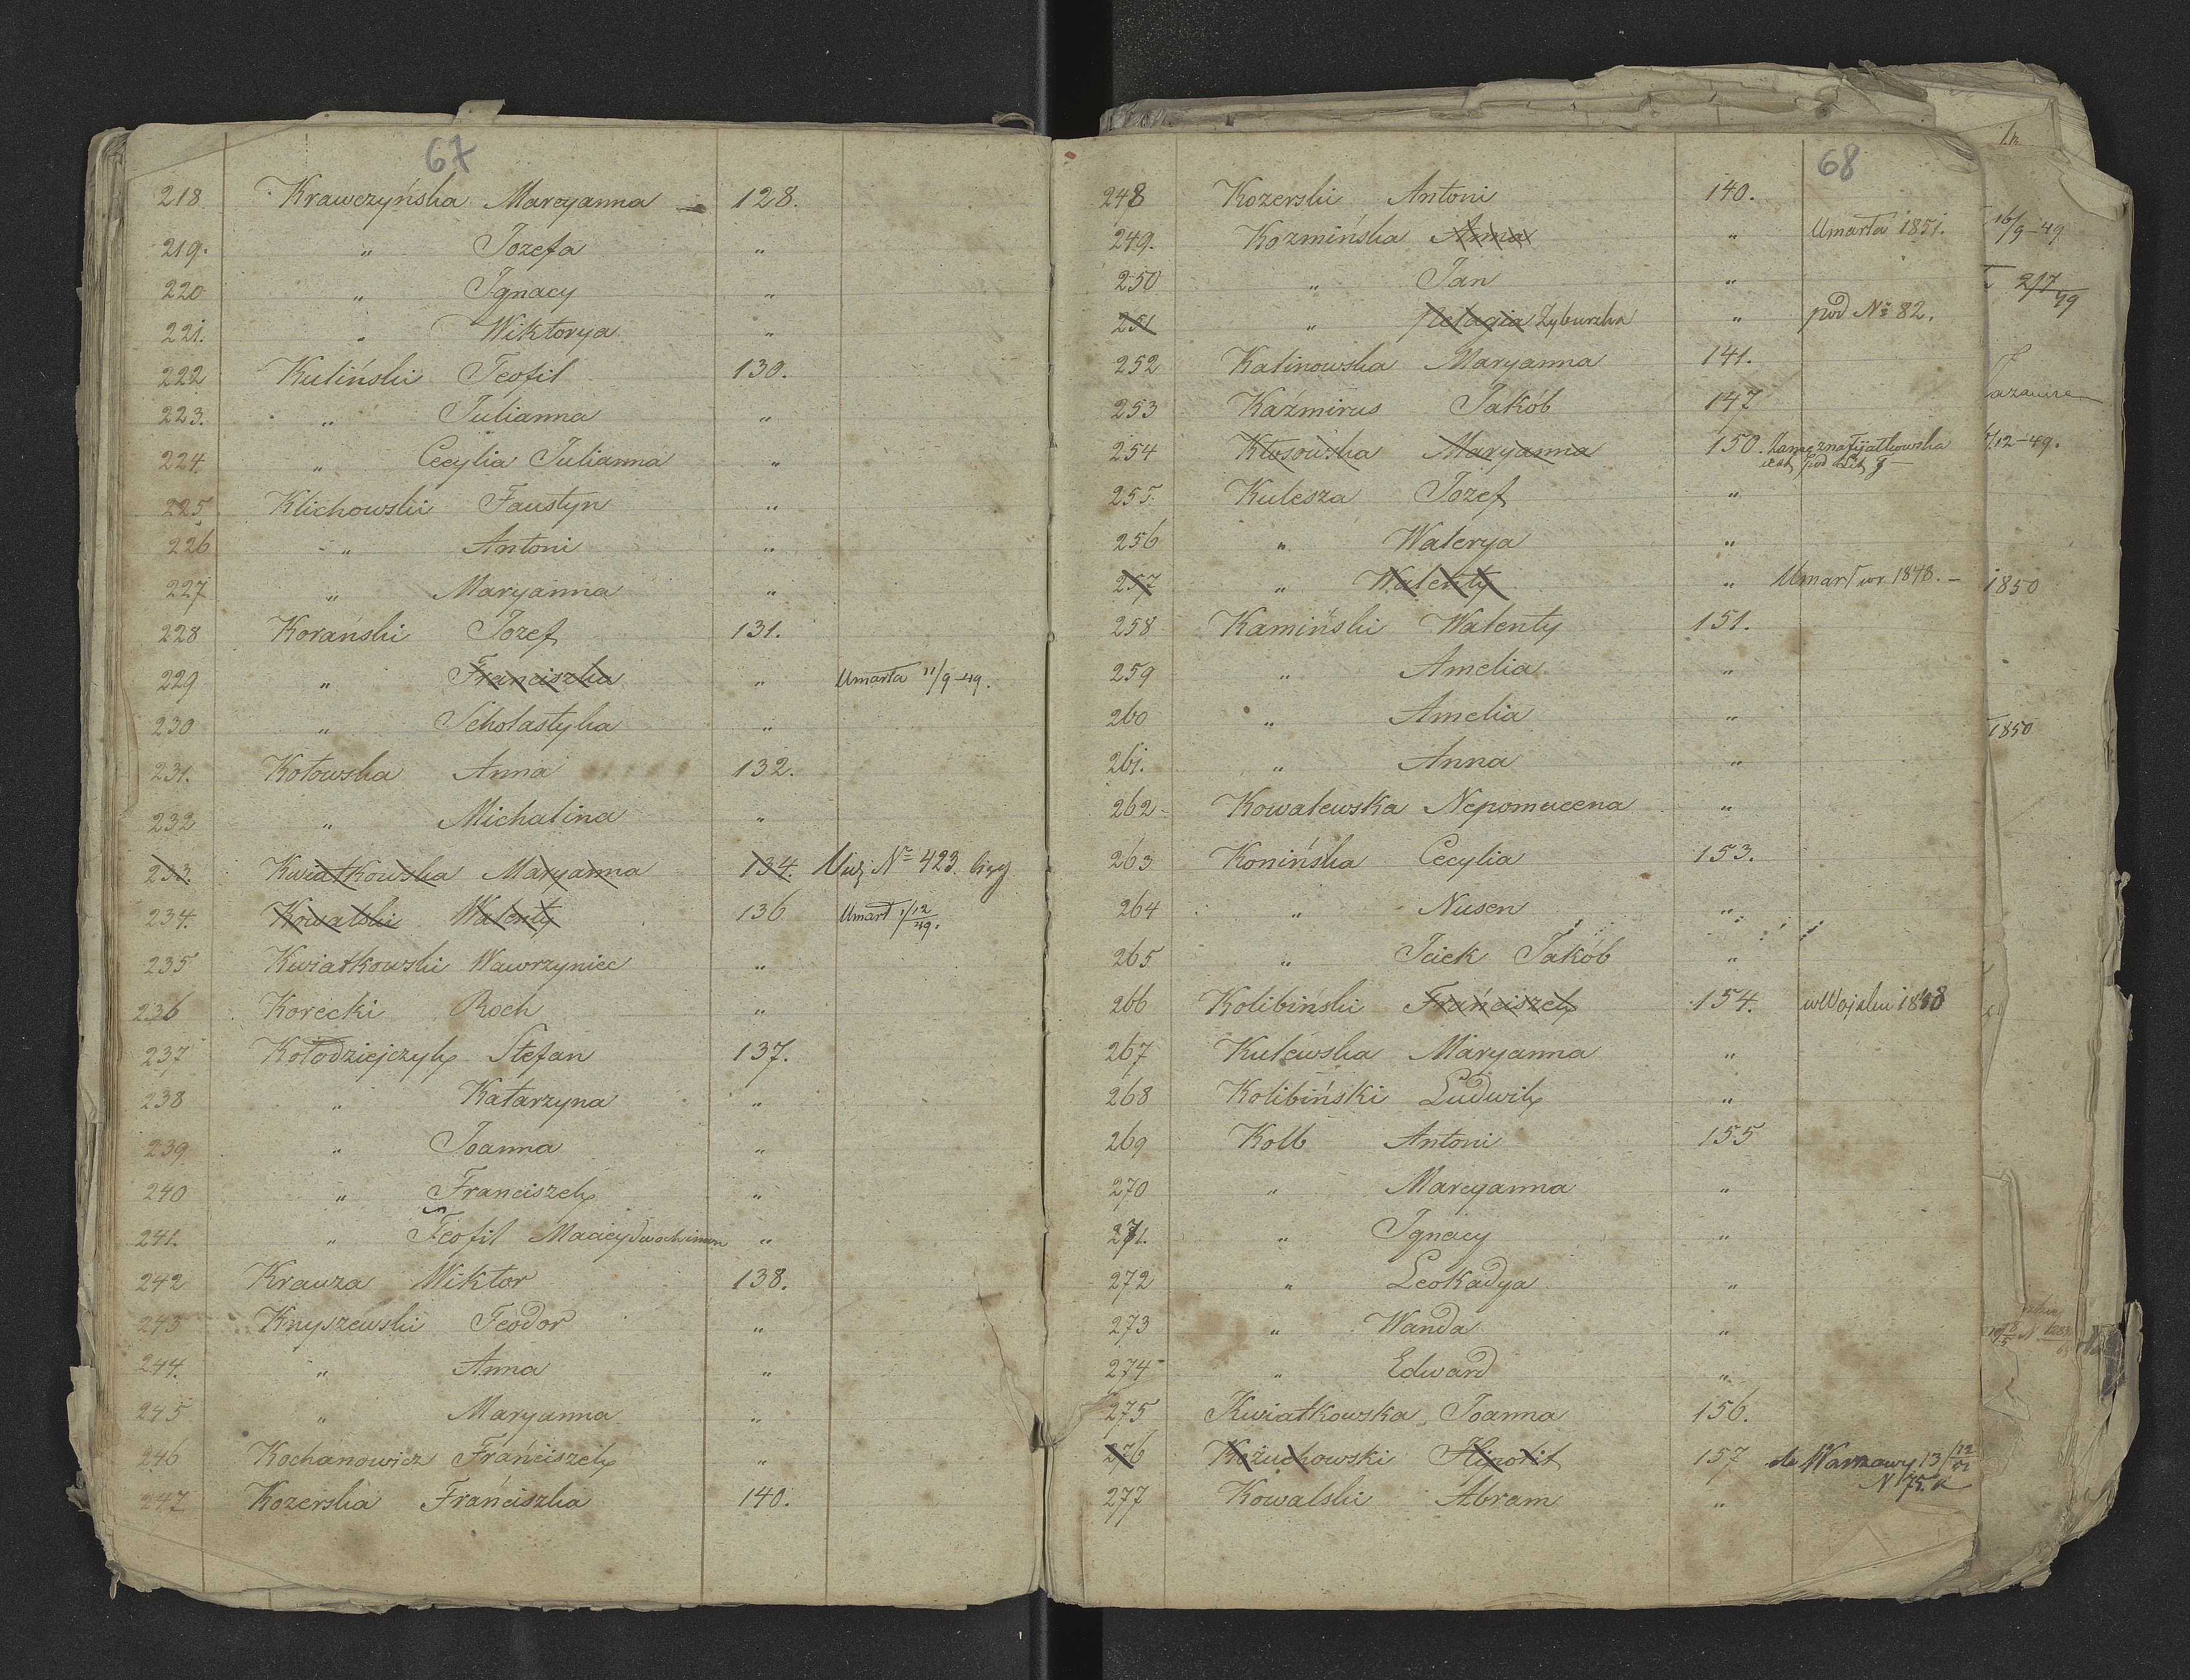 67
218 Krawczyńska Maryanna — 128.
219. " Jozefa "
220 " Ignacy "
221. " Wiktorya "
222 Kuliński Teofil 130.
223. " Julianna "
224. " Cecylia Julianna "
225 Klichowski Faustyn "
226 " Antoni "
227 " Maryanna "
228 Korański Jozef 131.
229 " Franciszka " Umarła 11/9-49.
230 " Scholastyka "
231. Kotowska Anna 132.
232 " Michalina "
233. Kwiatkowska Maryanna 134. Vidj No 423.
234. Kowalski Walenty 136 Umarł 1/12 49.
235 Kwiatkowski Wawrzyniec "
236 Korecki Roch "
237 Kołodziejczyk Stefan 137.
238 " Katarzyna "
239 " Joanna "
240 " Franciszek "
241. " Teofil Maciey "
242 Krauza Wiktor 138.
243 Knyszewski Feodor "
244. " Anna "
245 " Maryanna "
246 Kochanowicz Franciszek "
247 Kozerska Franciszka 140.
68
248 Kozerski Antoni 140.
249. Kozmińska Anna " Umarła 1851.
250 " Jan "
251 " Pelagia Zyburska " pod No 82.
252 Kalinowska Maryanna 141.
253 Kaźmirus Jakób 147
254 Kłosowska Maryanna 150. Zamężna Fijałkowska
jest pod Lit F —
255. Kulesza Jozef "
256 " Walerya "
257 " Walenty " Umarł w r. 1848. —
258 Kamiński Walenty 151.
259 " Amelia "
260 " Amelia "
261. " Anna "
262 Kowalewska Nepomucena "
263 Konińska Cecylia 153.
264 " Nusen "
265 " Icek Jakób "
266 Kolibiński Franciszek 154. w Wojsku 1848
267 Kulewska Maryanna "
268 Kolibiński Ludwik "
269 Kolb Antoni 155
270 " Maryanna "
271. " Ignacy "
272 " Leokadya "
273 " Wanda "
274 " Edward "
275 Kwiatkowska Joanna 156.
276 Kożuchowski Hipolit 157 do Warszawy 13/12 51
N 75. K
277 Kowalski Abram "
16/9-49
2/7 49
/12-49.
1850
1850